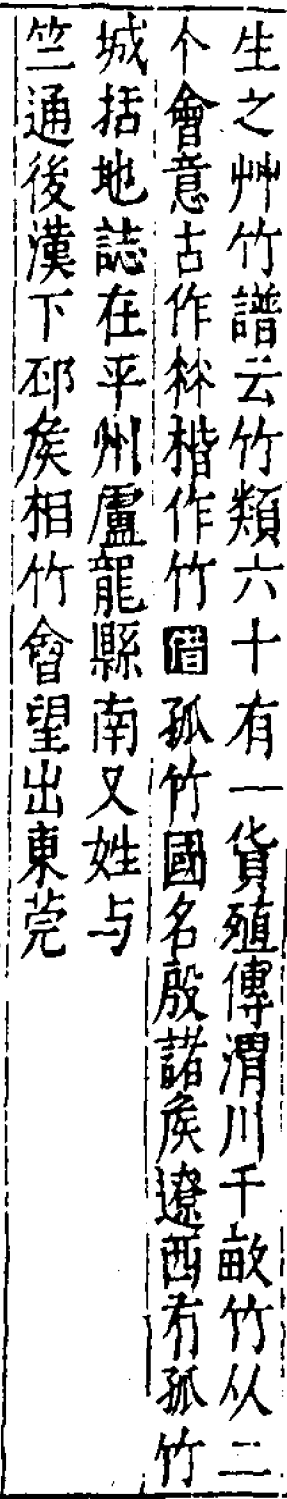 生之艸竹譜云竹類六十有一貨殖傳渭川千畝竹从二
个會意古作𥫗楷作竹借孤竹國名殷諸矦遼西有孤竹
城括地誌在平州盧龍縣南又姓与
竺通後漢下邳矦相竹曾望出東莞